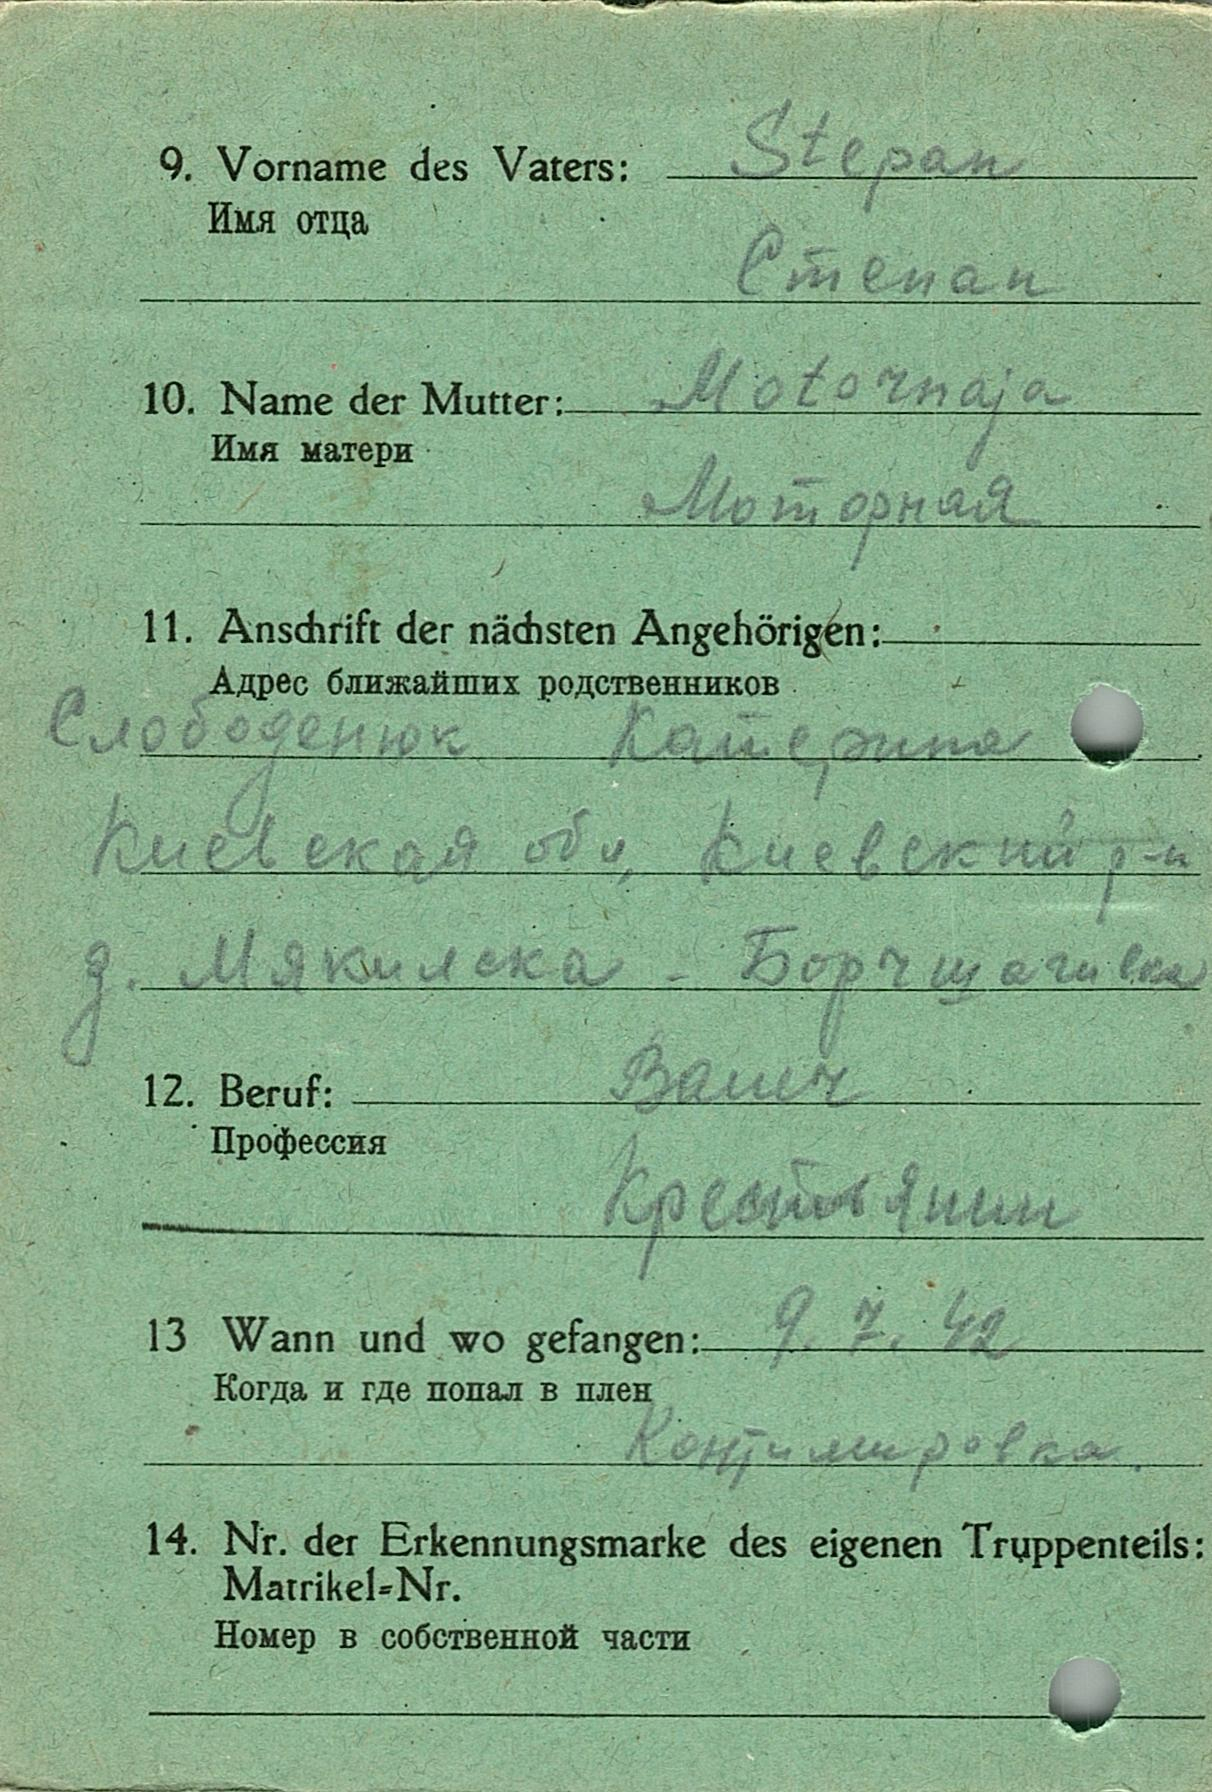 9. Vorname des Vaters: Stepan
Имя отца
Степан
10. Name der Mutter: Motornaja
Имя матери
Моторная
11. Anschrift der nächsten Angehörigen:
Адрес ближайших родственников
Слободенюк Катерина
Киевская обл, Киевский р-н
д. Мякилска - Борчщагивка
12. Beruf: Bauer
Профессия
Крестьянин
13 Wann und wo gefangen: 9. 7. 42
Когда и где попал в плен
Контимировка.
14. Nr. der Erkennungsmarke des eigenen Truppenteils:
Matrikel=Nr.
Номер в собственной части